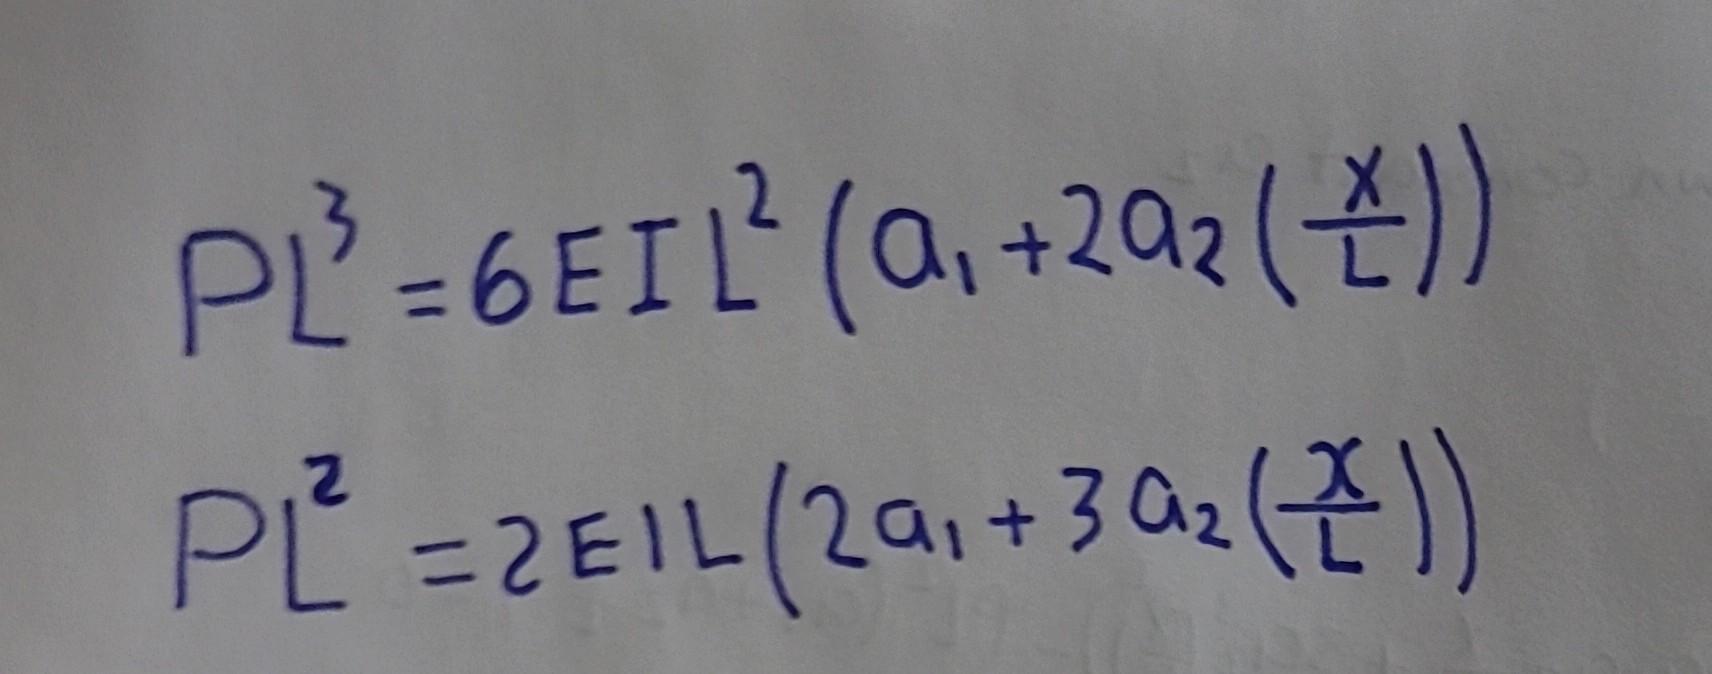 PL³ = 6EIL² (a₁ + 2a₂ (x/L))
PL² = 2EIL (2a₁ + 3a₂ (x/L))